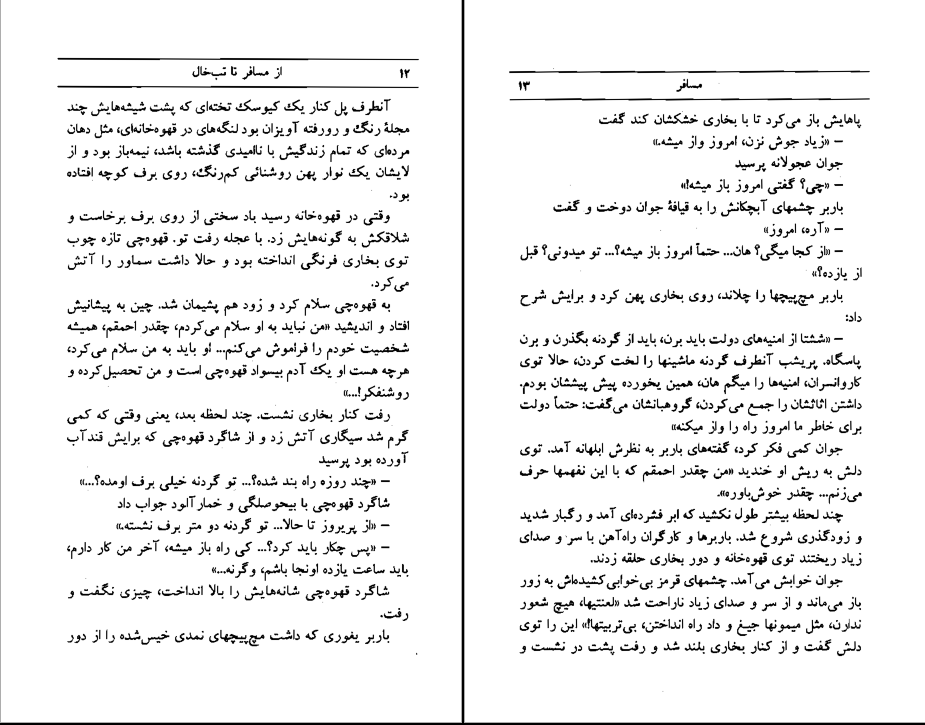 ۱۲ از مسافر تا تب‌خال
آنطرف پل کنار یک کیوسک تخته‌ای که پشت شیشه‌هایش چند
مجلهٔ رنگ و رورفته آویزان بود لنگه‌های در قهوه‌خانه‌ای، مثل دهان
مرده‌ای که تمام زندگیش با ناامیدی گذشته باشد، نیمه‌باز بود و از
لایشان یک نوار پهن روشنائی کم‌رنگ، روی برف کوچه افتاده
بود.
وقتی در قهوه‌خانه رسید باد سختی از روی برف برخاست و
شلاقکش به گونه‌هایش زد. با عجله رفت تو. قهوه‌چی تازه چوب
توی بخاری فرنگی انداخته بود و حالا داشت سماور را آتش
می‌کرد.
به قهوه‌چی سلام کرد و زود هم پشیمان شد. چین به پیشانیش
افتاد و اندیشید «من نباید به او سلام می‌کردم، چقدر احمقم، همیشه
شخصیت خودم را فراموش می‌کنم... او باید به من سلام می‌کرد،
هرچه هست او یک آدم بیسواد قهوه‌چی است و من تحصیل‌کرده و
روشنفکر!...»
رفت کنار بخاری نشست. چند لحظه بعد، یعنی وقتی که کمی
گرم شد سیگاری آتش زد و از شاگرد قهوه‌چی که برایش قندآب
آورده بود پرسید
– «چند روزه راه بند شده؟... تو گردنه خیلی برف اومده؟...»
شاگرد قهوه‌چی با بیحوصلگی و خمارآلود جواب داد
– «از پریروز تا حالا... تو گردنه دو متر برف نشسته.»
– «پس چکار باید کرد؟... کی راه باز میشه، آخر من کار دارم،
باید ساعت یازده اونجا باشم، وگرنه...»
شاگرد قهوه‌چی شانه‌هایش را بالا انداخت، چیزی نگفت و
رفت.
باربر یغوری که داشت مچ‌پیچهای نمدی خیس‌شده را از دور
مسافر ۱۳
پاهایش باز می‌کرد تا با بخاری خشکشان کند گفت
– «زیاد جوش نزن، امروز واز میشه.»
جوان عجولانه پرسید
– «چی؟ گفتی امروز باز میشه!»
باربر چشمهای آبچکانش را به قیافهٔ جوان دوخت و گفت
– «آره، امروز»
– «از کجا میگی؟ هان... حتماً امروز باز میشه؟... تو میدونی؟ قبل
از یازده؟»
باربر مچ‌پیچها را چلاند، روی بخاری پهن کرد و برایش شرح
داد:
– «ششتا از امنیه‌های دولت باید برن، باید از گردنه بگذرن و برن
پاسگاه. پریشب آنطرف گردنه ماشینها را لخت کردن، حالا توی
کاروانسران، امنیه‌ها را میگم هان، همین یخورده پیش پیششان بودم.
داشتن اثاثشان را جمع می‌کردن، گروهبانشان می‌گفت: حتماً دولت
برای خاطر ما امروز راه را واز میکنه»
جوان کمی فکر کرد، گفته‌های باربر به نظرش ابلهانه آمد. توی
دلش به ریش او خندید «من چقدر احمقم که با این نفهمها حرف
می‌زنم... چقدر خوش‌باوره».
چند لحظه بیشتر طول نکشید که ابر فشرده‌ای آمد و رگبار شدید
و زودگذری شروع شد. باربرها و کارگران راه‌آهن با سر و صدای
زیاد ریختند توی قهوه‌خانه و دور بخاری حلقه زدند.
جوان خوابش می‌آمد. چشمهای قرمز بی‌خوابی‌کشیده‌اش به زور
باز می‌ماند و از سر و صدای زیاد ناراحت شد «لعنتیها، هیچ شعور
ندارن، مثل میمونها جیغ و داد راه انداختن، بی‌تربیتها!» این را توی
دلش گفت و از کنار بخاری بلند شد و رفت پشت در نشست و